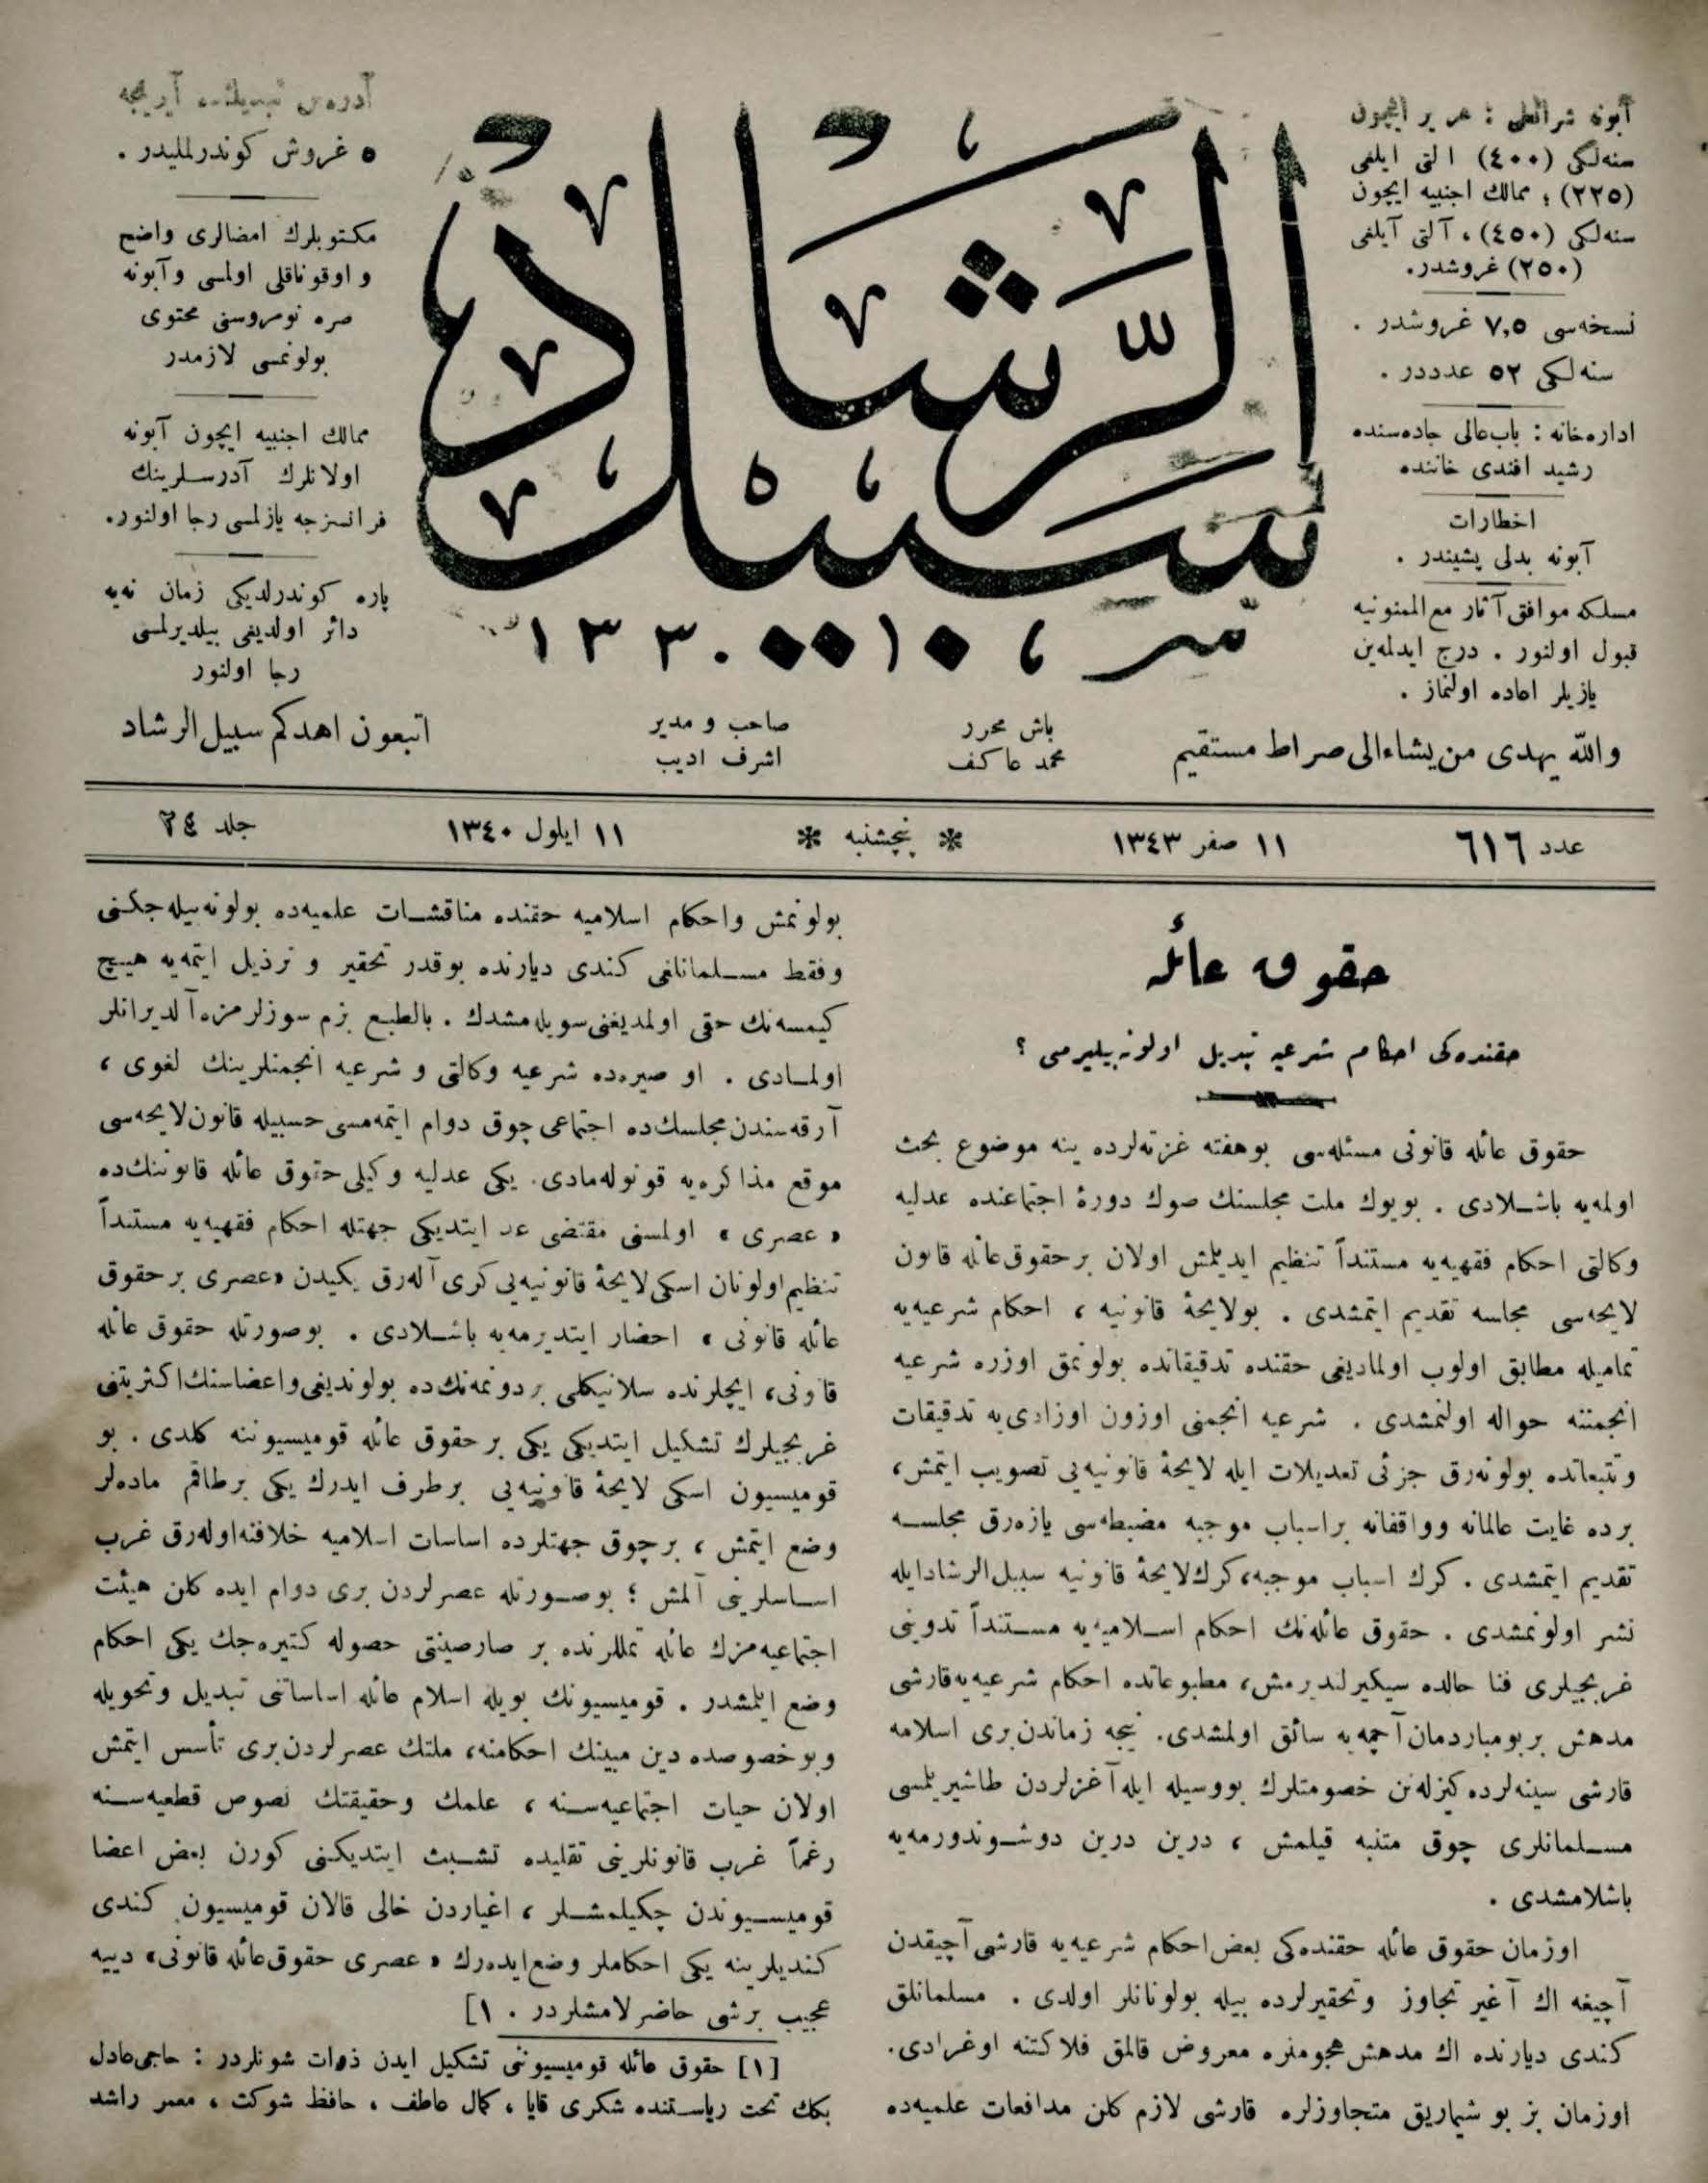 آبونه شرائطی : هر یر ایچون
سنه‌لکی (٤٠٠) التی ایلغی
(٢٢٥) ؛ ممالك اجنبیه ایچون
سنه‌لکی (٤٥٠) ، آلتی آیلغی
(٢٥٠) غروشدر.
نسخه‌سی ٧,٥ غروشدر .
سنه‌لکی ٥٢ عدددر .
اداره‌خانه : باب‌عالی جاده‌سنده
رشید افندی خاننده
اخطارات
آبونه بدلی پشیندر .
مسلکه موافق آثار مع‌الممنونیه
قبول اولنور . درج ایدلمه‌ین
یازیلر اعاده اولنماز .
سبیل الرشاد
آدره‌س تبدیلنده آیریجه
٥ غروش کوندرلملیدر .
مکتوبلرك امضالری واضح
و اوقوناقلی اولمسی و آبونه
صره نومروسنی محتوی
بولونمسی لازمدر
ممالك اجنبیه ایچون آبونه
اولانلرك آدرسلرینك
فرانسزجه یازلمسی رجا اولنور.
پاره کوندرلدیکی زمان نه‌یه
دائر اولدیغی بیلدیرلمسی
رجا اولنور
والله یهدی من یشاء الی صراط مستقیم
باش محرر
محمد عاکف
صاحب و مدیر
اشرف ادیب
اتبعون اهدکم سبیل الرشاد
عدد ٦١٦
١١ صفر ١٣٤٣
* پنجشنبه *
١١ ایلول ١٣٤٠
جلد ٢٤
حقوق عائله
حقنده‌کی احکام شرعیه تبدیل اولونه‌بیلیرمی ؟
حقوق عائله قانونی مسئله‌سی بوهفته غزته‌لرده ینه موضوع بحث
اولمه‌یه باشلادی . بویوك ملت مجلسنك صوك دورهٔ اجتماعنده عدلیه
وکالتی احکام فقهیه‌یه مستنداً تنظیم ایدیلمش اولان بر حقوق عائله قانون
لایحه‌سی مجلسه تقدیم ایتمشدی . بولایحهٔ قانونیه ، احکام شرعیه‌یه
تمامیله مطابق اولوب اولمادیغی حقنده تدقیقاتده بولونمق اوزره شرعیه
انجمننه حواله اولنمشدی . شرعیه انجمنی اوزون اوزادی‌یه تدقیقات
وتتبعاتده بولونه‌رق جزئی تعدیلات ایله لایحهٔ قانونیه‌یی تصویب ایتمش،
برده غایت عالمانه وواقفانه براسباب موجبه مضبطه‌سی یازه‌رق مجلسه
تقدیم ایتمشدی . کرك اسباب موجبه، کرك لایحهٔ قانونیه سبیل‌الرشاد ایله
نشر اولونمشدی . حقوق عائله‌نك احکام اسلامیه‌یه مستنداً تدوینی
غربجیلری فنا حالده سیکیرلندیرمش، مطبوعاتده احکام شرعیه‌یه قارشی
مدهش بر بومباردمان آچمه‌یه سائق اولمشدی. نیجه زماندن بری اسلامه
قارشی سینه‌لرده کیزله‌نن خصومتلرك بووسیله ایله آغزلردن طاشیریلمسی
مسلمانلری چوق متنبه قیلمش ، درین درین دوشوندورمه‌یه
باشلامشدی .
اوزمان حقوق عائله حقنده‌کی بعض احکام شرعیه‌یه قارشی آچیقدن
آچیغه اك آغیر تجاوز وتحقیرلرده بیله بولونانلر اولدی . مسلمانلق
کندی دیارنده اك مدهش هجوملره معروض قالمق فلاکتنه اوغرادی.
اوزمان بز بو شیماریق متجاوزلره قارشی لازم کلن مدافعات علمیه‌ده
بولونمش واحکام اسلامیه حقنده مناقشات علمیه‌ده بولونه‌بیله‌جکنی
وفقط مسلمانلغی کندی دیارنده بوقدر تحقیر و ترذیل ایتمه‌یه هیچ
کیمسه‌نك حقی اولمدیغنی سویله‌مشدك . بالطبع بزم سوزلرمزه آلدیرانلر
اولمادی . او صیره‌ده شرعیه وکالتی و شرعیه انجمنلرینك لغوی ،
آرقه‌سندن مجلسك‌ده اجتماعی چوق دوام ایتمه‌مسی حسبیله قانون لایحه‌سی
موقع مذاکره‌یه قونوله‌مادی. یکی عدلیه وکیلی حقوق عائله قانوننك‌ده
« عصری » اولمسنی مقتضی عد ایتدیکی جهتله احکام فقهیه‌یه مستنداً
تنظیم اولونان اسکی لایحهٔ قانونیه‌یی کری آله‌رق یکیدن «عصری بر حقوق
عائله قانونی » احضار ایتدیرمه‌یه باشلادی . بوصورتله حقوق عائله
قانونی، ایچلرنده سلانیکلی بر دونمه‌نك‌ده بولوندیغی واعضاسنك اکثریتنی
غربجیلرك تشکیل ایتدیکی یکی بر حقوق عائله قومیسیوننه کلدی . بو
قومیسیون اسکی لایحهٔ قانونیه‌یی برطرف ایدرك یکی برطاقم ماده‌لر
وضع ایتمش ، برچوق جهتلرده اساسات اسلامیه خلافنه اوله‌رق غرب
اساسلرینی آلمش ؛ بوصورتله عصرلردن بری دوام ایده کلن هیئت
اجتماعیه‌مزك عائله تمللرنده بر صارصینتی حصوله کتیره‌جك یکی احکام
وضع ایلمشدر . قومیسیونك بویله اسلام عائله اساساتنی تبدیل وتحویله
وبو خصوصده دین مبینك احکامنه، ملتك عصرلردن بری تأسس ایتمش
اولان حیات اجتماعیه‌سنه ، علمك وحقیقتك نصوص قطعیه‌سنه
رغماً غرب قانونلرینی تقلیده تشبث ایتدیکنی کورن بعض اعضا
قومیسیوندن چکیلمشلر ، اغیاردن خالی قالان قومیسیون کندی
کندیلرینه یکی احکاملر وضع ایده‌رك « عصری حقوق عائله قانونی» دییه
عجیب برشی حاضرلامشلردر . [١
[١] حقوق عائله قومیسیوننی تشکیل ایدن ذوات شونلردر : حاجی‌عادل
بکك تحت ریاستنده شکری قایا ، کمال عاطف ، حافظ شوکت ، معمر راشد